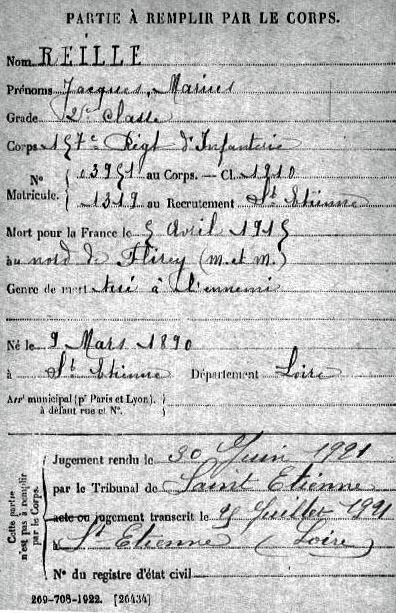 PARTIE À REMPLIR PAR LE CORPS.
Nom REILLE
Prénoms Jacques, Marius
Grade 2e classe
Corps 157e Régt d'Infanterie
No Matricule. 03951 au Corps. — Cl. 1910
1319 au Recrutement St Etienne
Mort pour la France le 5 Avril 1915
au nord de Flirey (M. et M.)
Genre de mort tué à l'ennemi
Né le 9 Mars 1890
à St Etienne Département Loire
Arrt municipal (pr Paris et Lyon),
à défaut rue et No.
Cette partie n'est pas à remplir par le Corps.
Jugement rendu le 30 Juin 1921
par le Tribunal de Saint Etienne
acte ou jugement transcrit le Juillet 1921
à St Etienne (Loire)
No du registre d'état civil
269-708-1922. [26434]